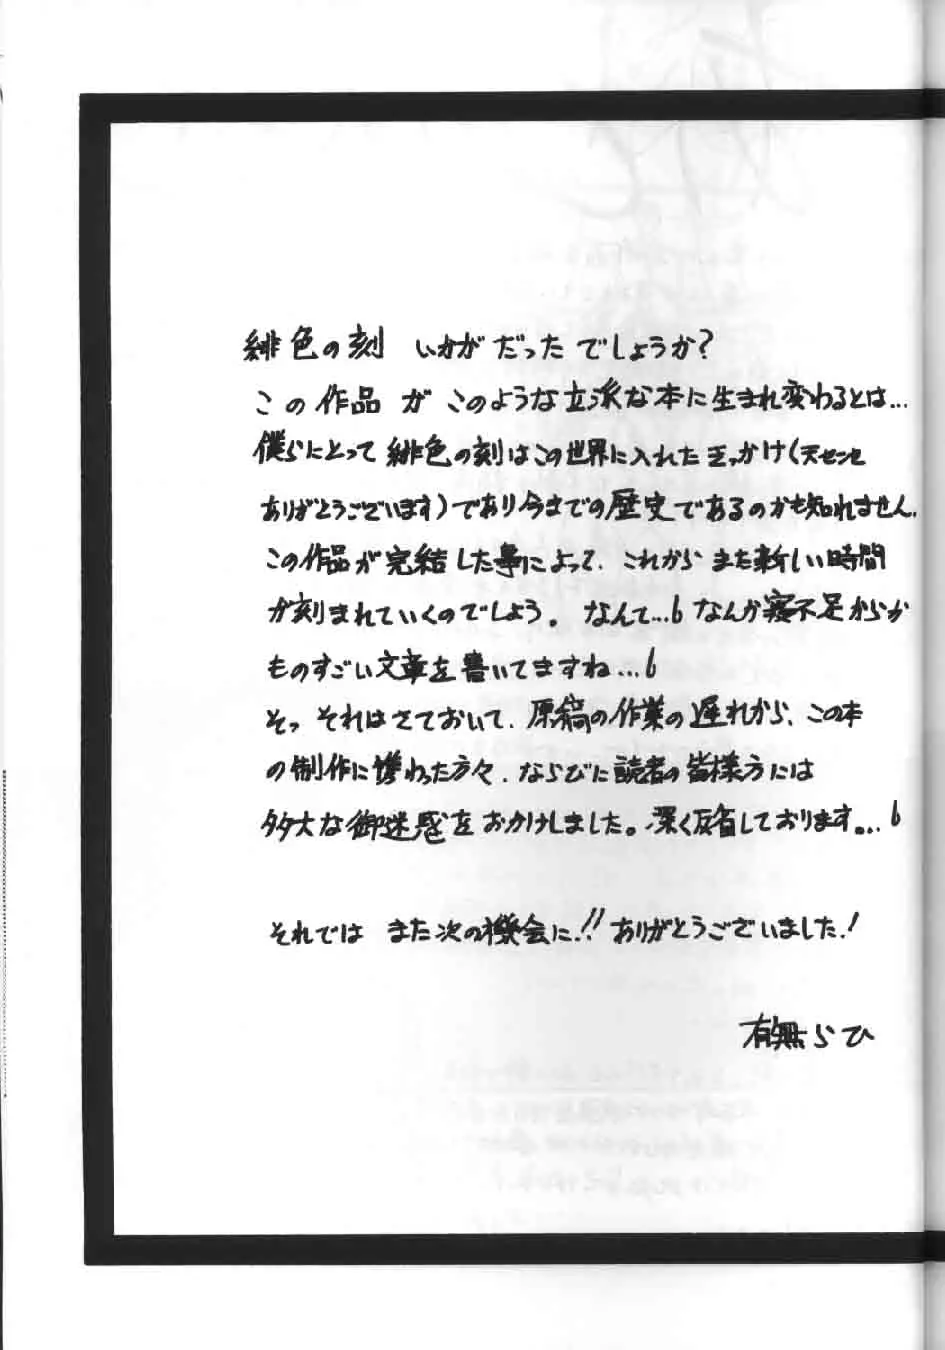 緋色の刻 いかがだったでしょうか?
この作品が このような立派な本に生まれ変わるとは...
僕らにとって緋色の刻はこの世界に入れたきっかけ(天センセ
ありがとうございます)であり今までの歴史であるのかも知れません.
この作品が完結した事によって、これから また新しい時間
が刻まれていくのでしょう。なんて...6 なんか寝不足からか
ものすごい文章を書いてますね...6
そっ それはさておいて、原稿の作業の遅れから、この本
の制作に携わった方々、ならびに読者の皆様方には
多大な御迷惑をおかけしました。深く反省しております。..6
それでは また次の機会に!! ありがとうございました!
有無らひ